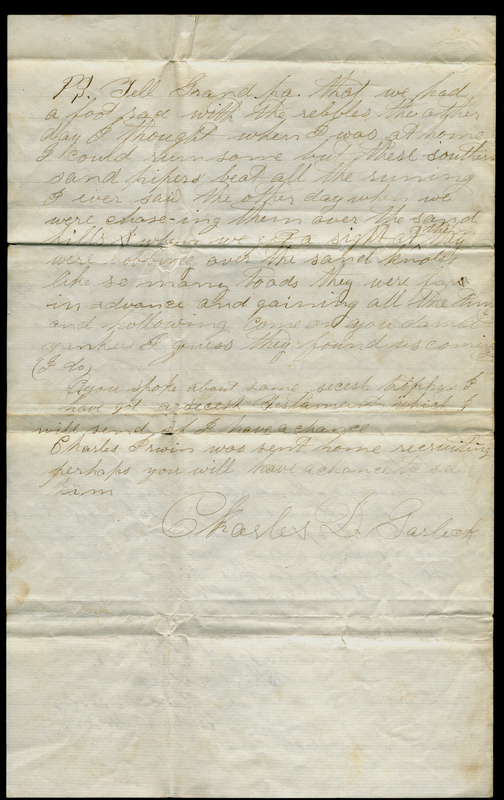 PS. Tell Grand pa. that we had
a foot rad with the rebbles the other
day I thought when I was at home
I could run some but these southern
sand pipers beat all the runing
I ever saw the other day when we
were chase-ing them over the sand
hills & when we got a sight at them they
were bobbing over the sand knobs
like so many toads they were
in advance and gaining all the time
and hollowing Come on you damd
yankees I guess they found us coming
(I do)
you spoke about some secesh trophies I
have got a secesh Testament which I
will send if I have a chance
Charles Irwin was sent home recruiting
perhaps you will have a chance to see
him
Charles D. Garlick